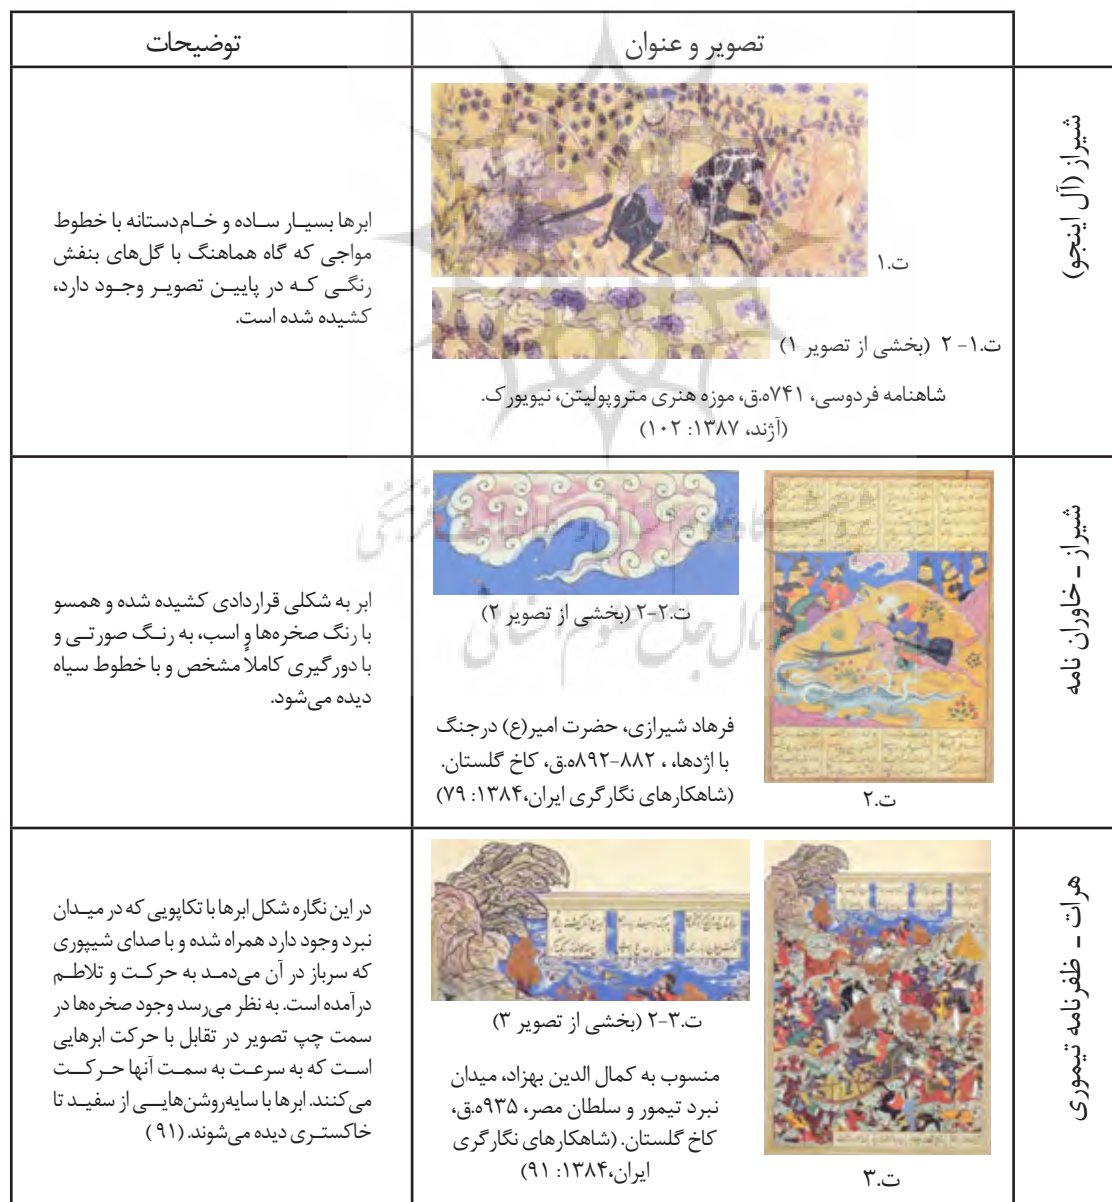 تصویر و عنوان
توضیحات
شیراز (آل اینجو)
ت.۱
ت.۱- ۲ (بخشی از تصویر ۱)
شاهنامه فردوسی، ۷۴۱ه.ق، موزه هنری متروپولیتن، نیویورک.
(آژند، ۱۳۸۷: ۱۰۲)
ابرها بسیار ساده و خام‌دستانه با خطوط
مواجی که گاه هماهنگ با گل‌های بنفش
رنگی که در پایین تصویر وجود دارد،
کشیده شده است.
شیراز - خاوران نامه
ت.۲
ت.۲-۲ (بخشی از تصویر ۲)
فرهاد شیرازی، حضرت امیر(ع) درجنگ
با اژدها، ، ۸۸۲-۸۹۲ه.ق، کاخ گلستان.
(شاهکارهای نگارگری ایران،۱۳۸۴: ۷۹)
ابر به شکلی قراردادی کشیده شده و همسو
با رنگ صخره‌ها و اسب، به رنگ صورتی و
با دورگیری کاملاً مشخص و با خطوط سیاه
دیده می‌شود.
هرات - ظفرنامه تیموری
ت.۳
ت.۳-۲ (بخشی از تصویر ۳)
منسوب به کمال الدین بهزاد، میدان
نبرد تیمور و سلطان مصر، ۹۳۵ه.ق،
کاخ گلستان. (شاهکارهای نگارگری
ایران،۱۳۸۴: ۹۱)
در این نگاره شکل ابرها با تکاپویی که در میدان
نبرد وجود دارد همراه شده و با صدای شیپوری
که سرباز در آن می‌دمد به حرکت و تلاطم
درآمده است. به نظر می‌رسد وجود صخره‌ها در
سمت چپ تصویر در تقابل با حرکت ابرهایی
است که به سرعت به سمت آنها حرکت
می‌کنند. ابرها با سایه‌روشن‌هایی از سفید تا
خاکستری دیده می‌شوند. (۹۱)